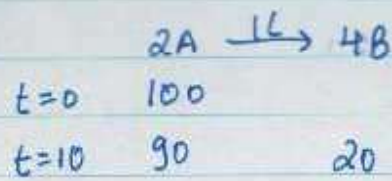 2A 1L→ 4B
t=0 100
t=10 90 20